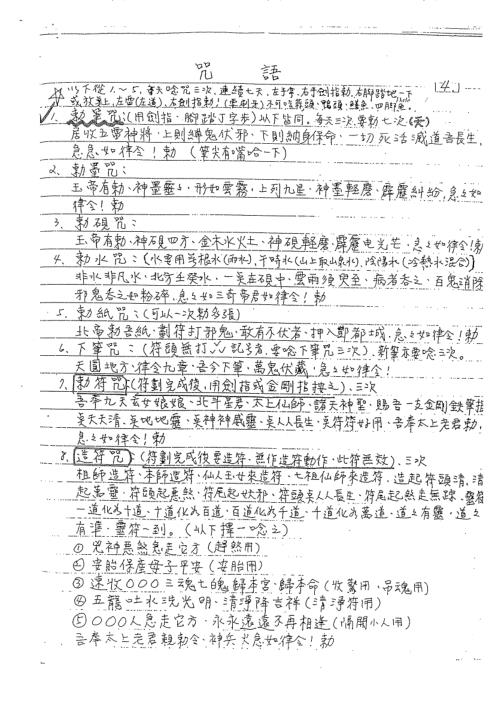 咒語
4.
以下從1~5,每天唸咒三次,連續七天,左手拿,右手劍指勅,右腳踏地一下
1. 勅筆咒:(用劍指、腳踏丁字步)以下皆同。每天三次,要勅七次(天)
居收五雷神將、上則縛鬼伏邪、下則納身保命、一切死活滅道吾長生,
急急如律令!勅 (筆尖有嗒哈一下)
2. 勅墨咒:
玉帝有勅、神墨靈々、形如雲霧、上列九星、神墨輕磨、霹靂糾紛、急々如
律令!勅
3. 勅硯咒:
玉帝有勅、神硯四方、金木水火土、神硯輕磨、霹靂电光芒、急々如律令!勅
4. 勅水咒:(水要用無根水(雨水)、干時水(山上取山泉水)、陰陽水(冷熱水混合))
非水非凡水、北方壬癸水、一点在硯中、雲雨須臾至、病者吞之、百鬼消除
邪鬼吞之如粉碎、急々如三奇帝君如律令!勅
5. 勅紙咒:(可以一次勅多張)
北帝勅吾紙、劃符打邪鬼、敢有不伏者、押入酆都城、急々如律令!勅
6. 下筆咒:(符頭無打✓✓✓記号者、要唸下筆咒三次)、新筆本要唸三次。
天圓地方、律令九章、吾今下筆、萬鬼伏藏、急々如律令!
7. 勅符咒(符劃完成後,用劍指或金剛指按之)、三次
吾奉九天玄女娘娘、北斗星君、太上仙師、諸天神聖、賜吾一支金剛鉄筆指
吳天天清、吳地地靈、吳神神威靈、吳人人長生、吳符符好用、吾奉太上老君勅、
急々如律令!勅
8. 造符咒(符劃完成後要造符、無作造符動作、此符無效)、三次
祖師造符、本師造符、仙人玉女來造符、七祖仙師來造符、造起符頭清,清
起萬靈、符頭起息煞、符尾起奴邪、符頭吳人人長生、符尾起煞走無踪、
一道化為十道、十道化為百道、百道化為千道、千道化為萬道、道々有靈、道々
有準、靈符一到。(以下擇一唸之)
① 咒神惡煞急走它方(趕煞用)
② 安胎保產母子平安(安胎用)
③ 速收○○○三魂七魄歸本宮、歸本命(收驚用、吊魂用)
④ 五龍吐水洗光明、清淨降吉祥(清淨符用)
⑤ ○○○人急走它方、永永遠遠不再相逢(隔開小人用)
吾奉太上老君親勅令、神兵火急如律令!勅